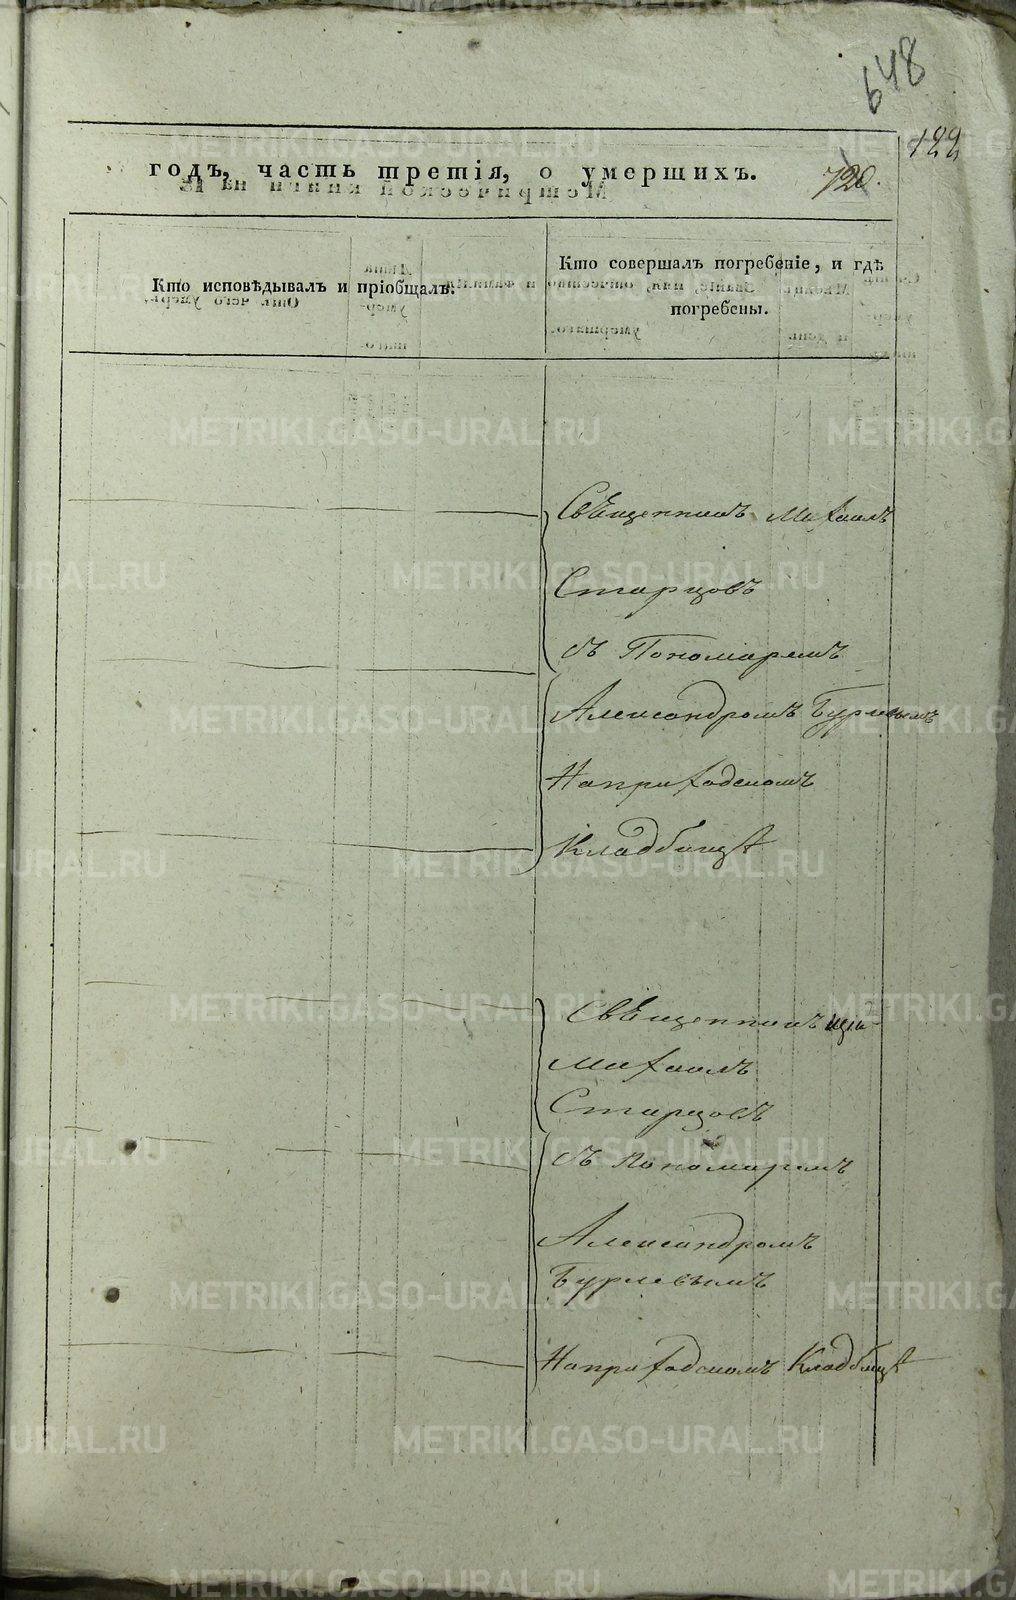 648
122
годъ, часть третія, о умершихъ.
720.
Кто исповѣдывалъ и пріобщалъ.
Кто совершалъ погребеніе, и гдѣ
погребены.
Свѣщенникъ Михаилъ
Старцовъ
съ Пономаремъ
Александромъ Бурлевымъ
На приходскомъ
Кладбищѣ
Свѣщенникъ
Михаилъ
Старцовъ
съ Пономаремъ
Александромъ
Бурлевымъ
На приходскомъ Кладбищѣ
METRIKI.GASO-URAL.RU